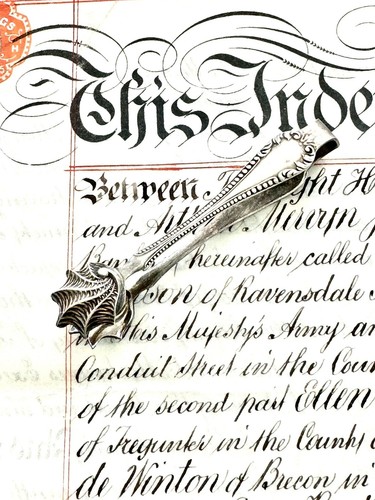 GS
H
This Inde
Between ght H
and Art Mervyn
hereinafter called
son of Ravensdale
His Majesty's Army an
Conduit Street in the Coun
of the second part Ellen
of Tregunter in the County
de Winton of Brecon in